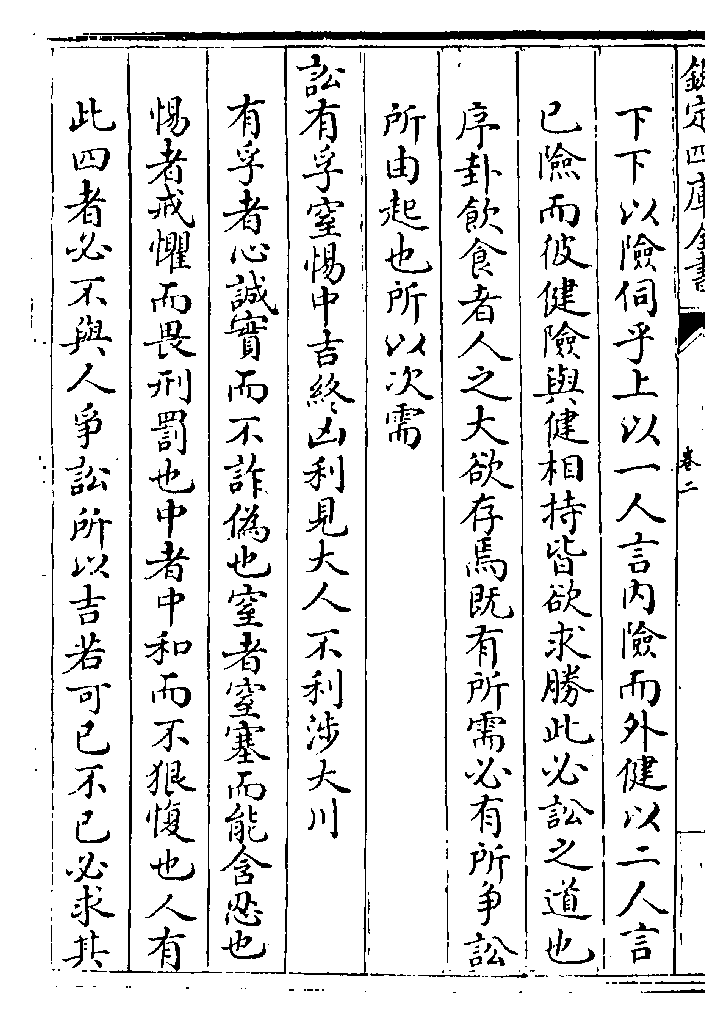 欽定四庫全書
卷二
下下以險伺乎上以一人言内險而外健以二人言
已險而彼健險與健相持皆欲求勝此必訟之道也
序卦飲食者人之大欲存焉既有所需必有所爭訟
所由起也所以次需
訟有孚窒惕中吉終凶利見大人不利涉大川
有孚者心誠實而不詐偽也窒者窒塞而能含忍也
惕者戒懼而畏刑罰也中者中和而不狠愎也人有
此四者必不與人爭訟所以吉若可已不已必求其